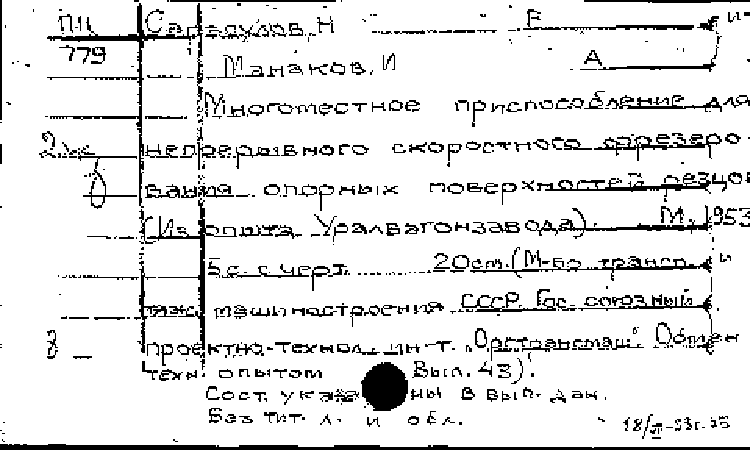 ПЦ Сарапулов, Н В и
779 Манаков, И А
Многоместное приспособление для
2 непрерывного скоростного фрезеро-
вания опорных поверхностей резцов
(Из опыта Уралвагонзавода). М., 1953
5 с. с черт. 20 см. (М-во трансп. и
тяж. машиностроения СССР. Гос. союзный
проектно-технол. ин-т. "Оргтрансмаш". Обмен
техн. опытом Вып. 43).
Сост. указаны в вып. дан.
Без тит. л. и обл.